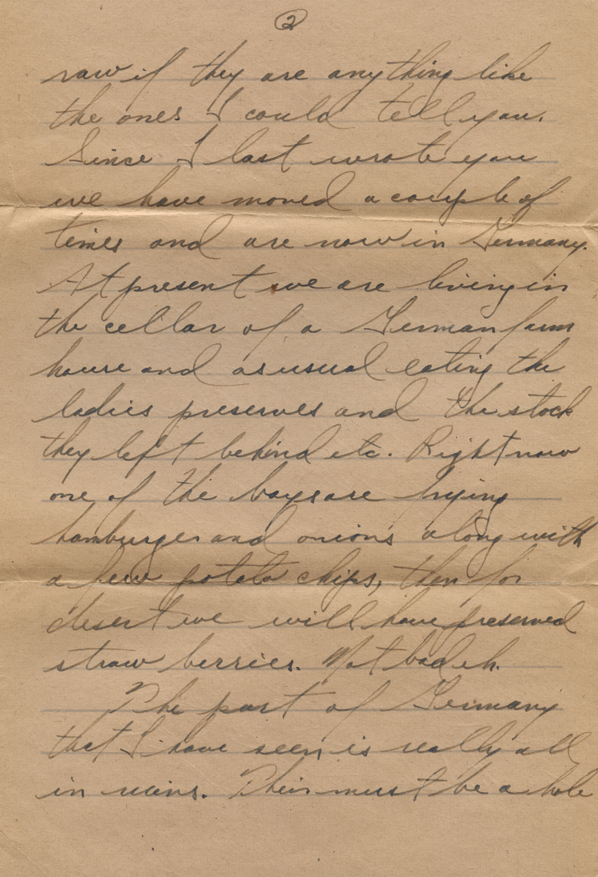 ②
raw if they are anything like
the ones I could tell you.
Since I last wrote you
we have moved a couple of
times and are now in Germany.
At present we are living in
the cellar of a German farm
house and as usual eating the
ladies preserves and the stock
they left behind etc. Right now
one of the boys are frying
hamburger and onions along with
a few potato chips, then for
desert we will have preserved
straw berries. Not bad eh.
The part of Germany
that I have seen is really all
in ruins. Their must be a hole